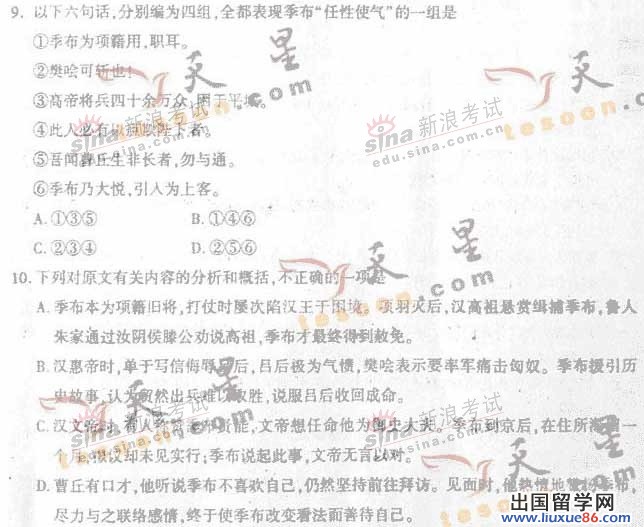 9. 以下六句话,分别编为四组,全都表现季布“任性使气”的一组是
①季布为项籍用,职耳。
②樊哙可斩也!
③高帝将兵四十余万众,困于平城。
④此人必有以 陛下者。
⑤吾闻曹丘生非长者,勿与通。
⑥季布乃大悦,引入为上客。
A.①③⑤ B.①④⑥
C.②③④ D.②⑤⑥
10.下列对原文有关内容的分析和概括,不正确的一项是
A.季布本为项籍旧将,打仗时屡次陷汉王于困境。项羽灭后,汉高祖悬赏缉捕季布,鲁人
朱家通过汝阴侯滕公劝说高祖,季布才最终得到赦免。
B.汉惠帝时,单于写信侮辱吕后,吕后极为气愤,樊哙表示要率军痛击匈奴。季布援引历
史故事,认为贸然出兵难以取胜,说服吕后收回成命。
C.汉文帝时,有人称赞季布贤能,文帝想任命他为御史大夫。季布到京后,在住所滞留一
个月,拟议却未见实行;季布说起此事,文帝无言以对。
D.曹丘有口才,他听说季布不喜欢自己,仍然坚持前往拜访。见面时,他热情地 季布,
尽力与之联络感情,终于使季布改变看法而善待自己。
天星
tesoon.com
sina新浪考试
edu.sina.com.cn
出国留学网
www.liuxue86.com